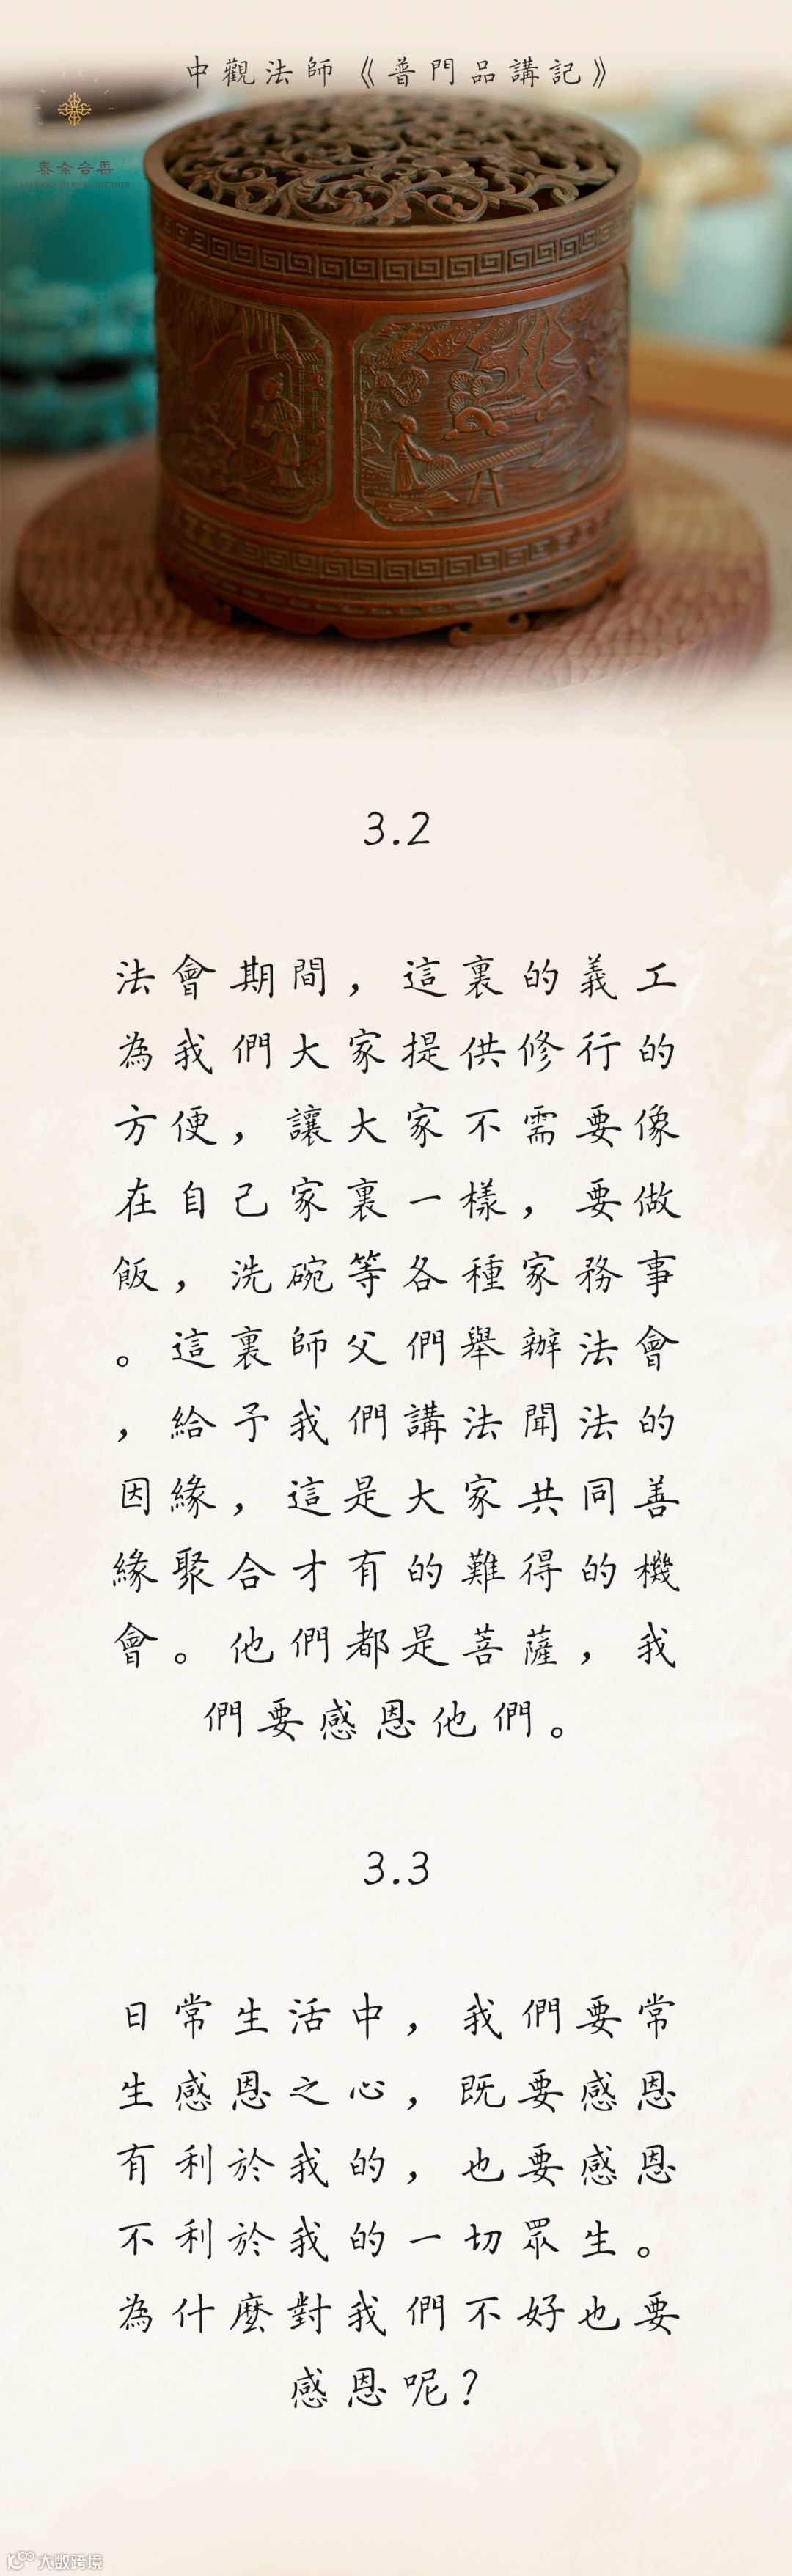 中觀法師《普門品講記》
泰余合香
ELEGANT HERBAL INCENSE
3.2
法會期間，這裏的義工
為我們大家提供修行的
方便，讓大家不需要像
在自己家裏一樣，要做
飯，洗碗等各種家務事
。這裏師父們舉辦法會
，給予我們講法聞法的
因緣，這是大家共同善
緣聚合才有的難得的機
會。他們都是菩薩，我
們要感恩他們。
3.3
日常生活中，我們要常
生感恩之心，既要感恩
有利於我的，也要感恩
不利於我的一切眾生。
為什麼對我們不好也要
感恩呢？
大数跨境